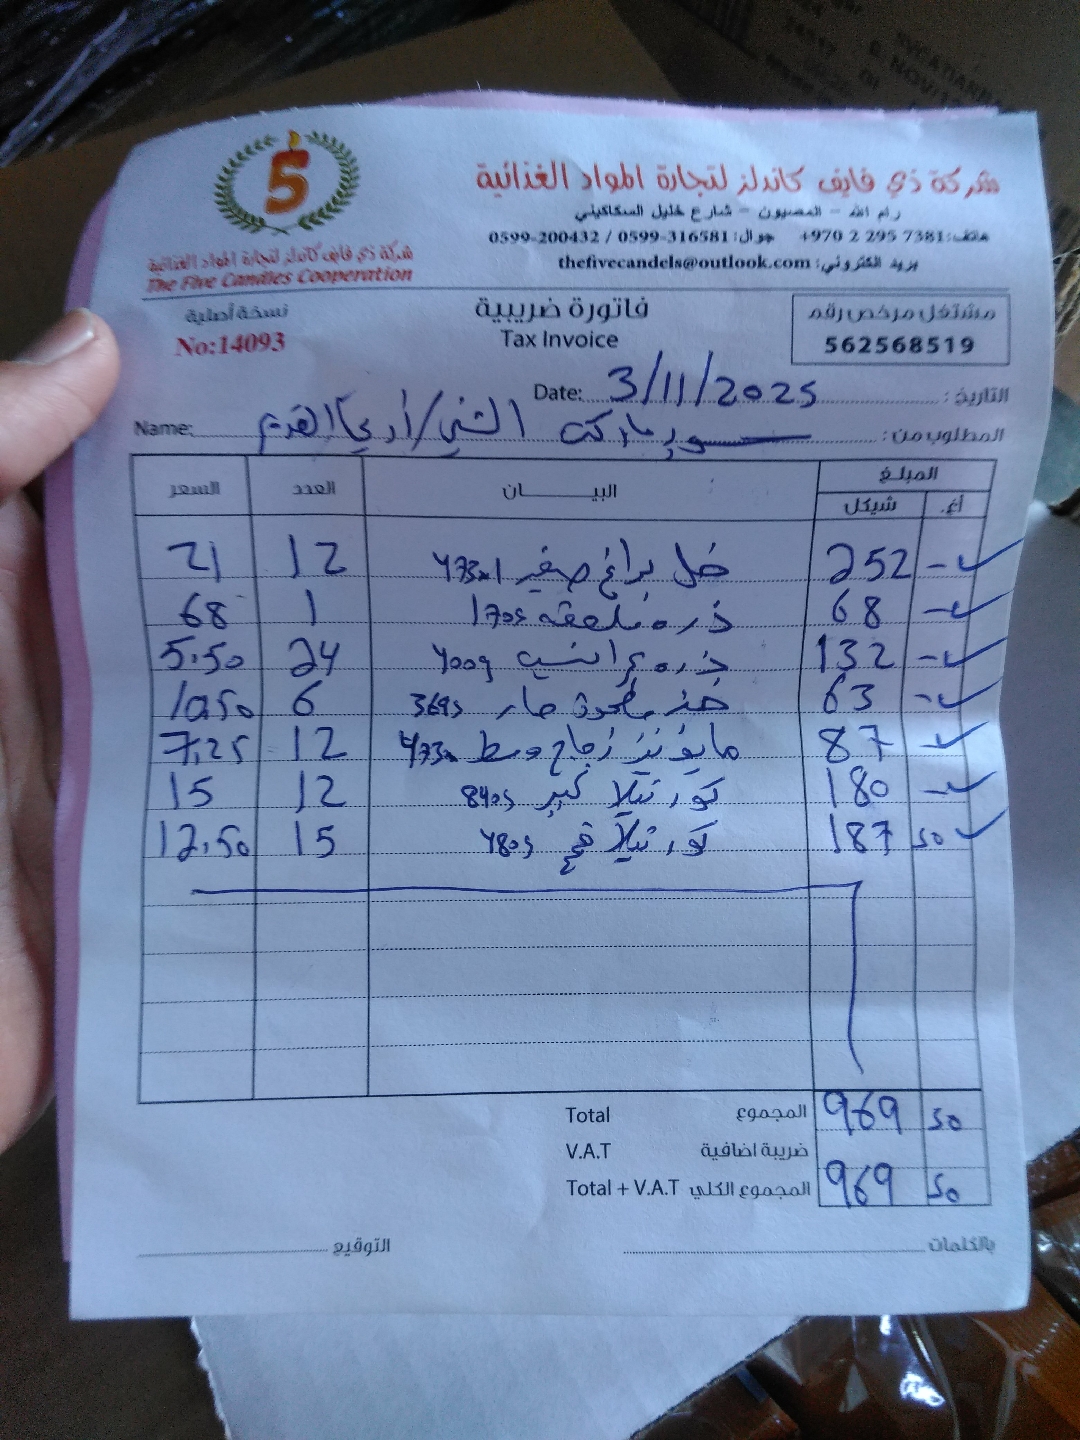 5
شركة ذي فايف كاندلز لتجارة المواد الغذائية
The Five Candles Cooperation
شركة ذي فايف كاندلز لتجارة المواد الغذائية
رام الله - المصيون - شارع خليل السكاكيني
هاتف: +970 2 295 7381 جوال: 0599-316581 / 0599-200432
بريد الكتروني: thefivecandels@outlook.com
نسخة أصلية
No:14093
فاتورة ضريبية
Tax Invoice
مشتغل مرخص رقم
562568519
التاريخ: 3/11/2025 Date:
المطلوب من: سوبر ماركت الشني / Name:
المبلغ البيــــــان العدد السعر
أغ. شيكل
- 252 خل براغ صغير 473ml 12 21
- 68 ذره ملعقه 170g 1 68
- 132 ذره 400g 24 5.50
- 63 حار 369g 6 10.50
- 87 مايونيز زجاج وسط 473m 12 7.25
- 180 كور تيلا كبير 840g 12 15
50 187 كور تيلا قمح 480g 15 12.50
Total المجموع 969 50
V.A.T ضريبة اضافية
Total + V.A.T المجموع الكلي 969 50
بالكلمات التوقيع